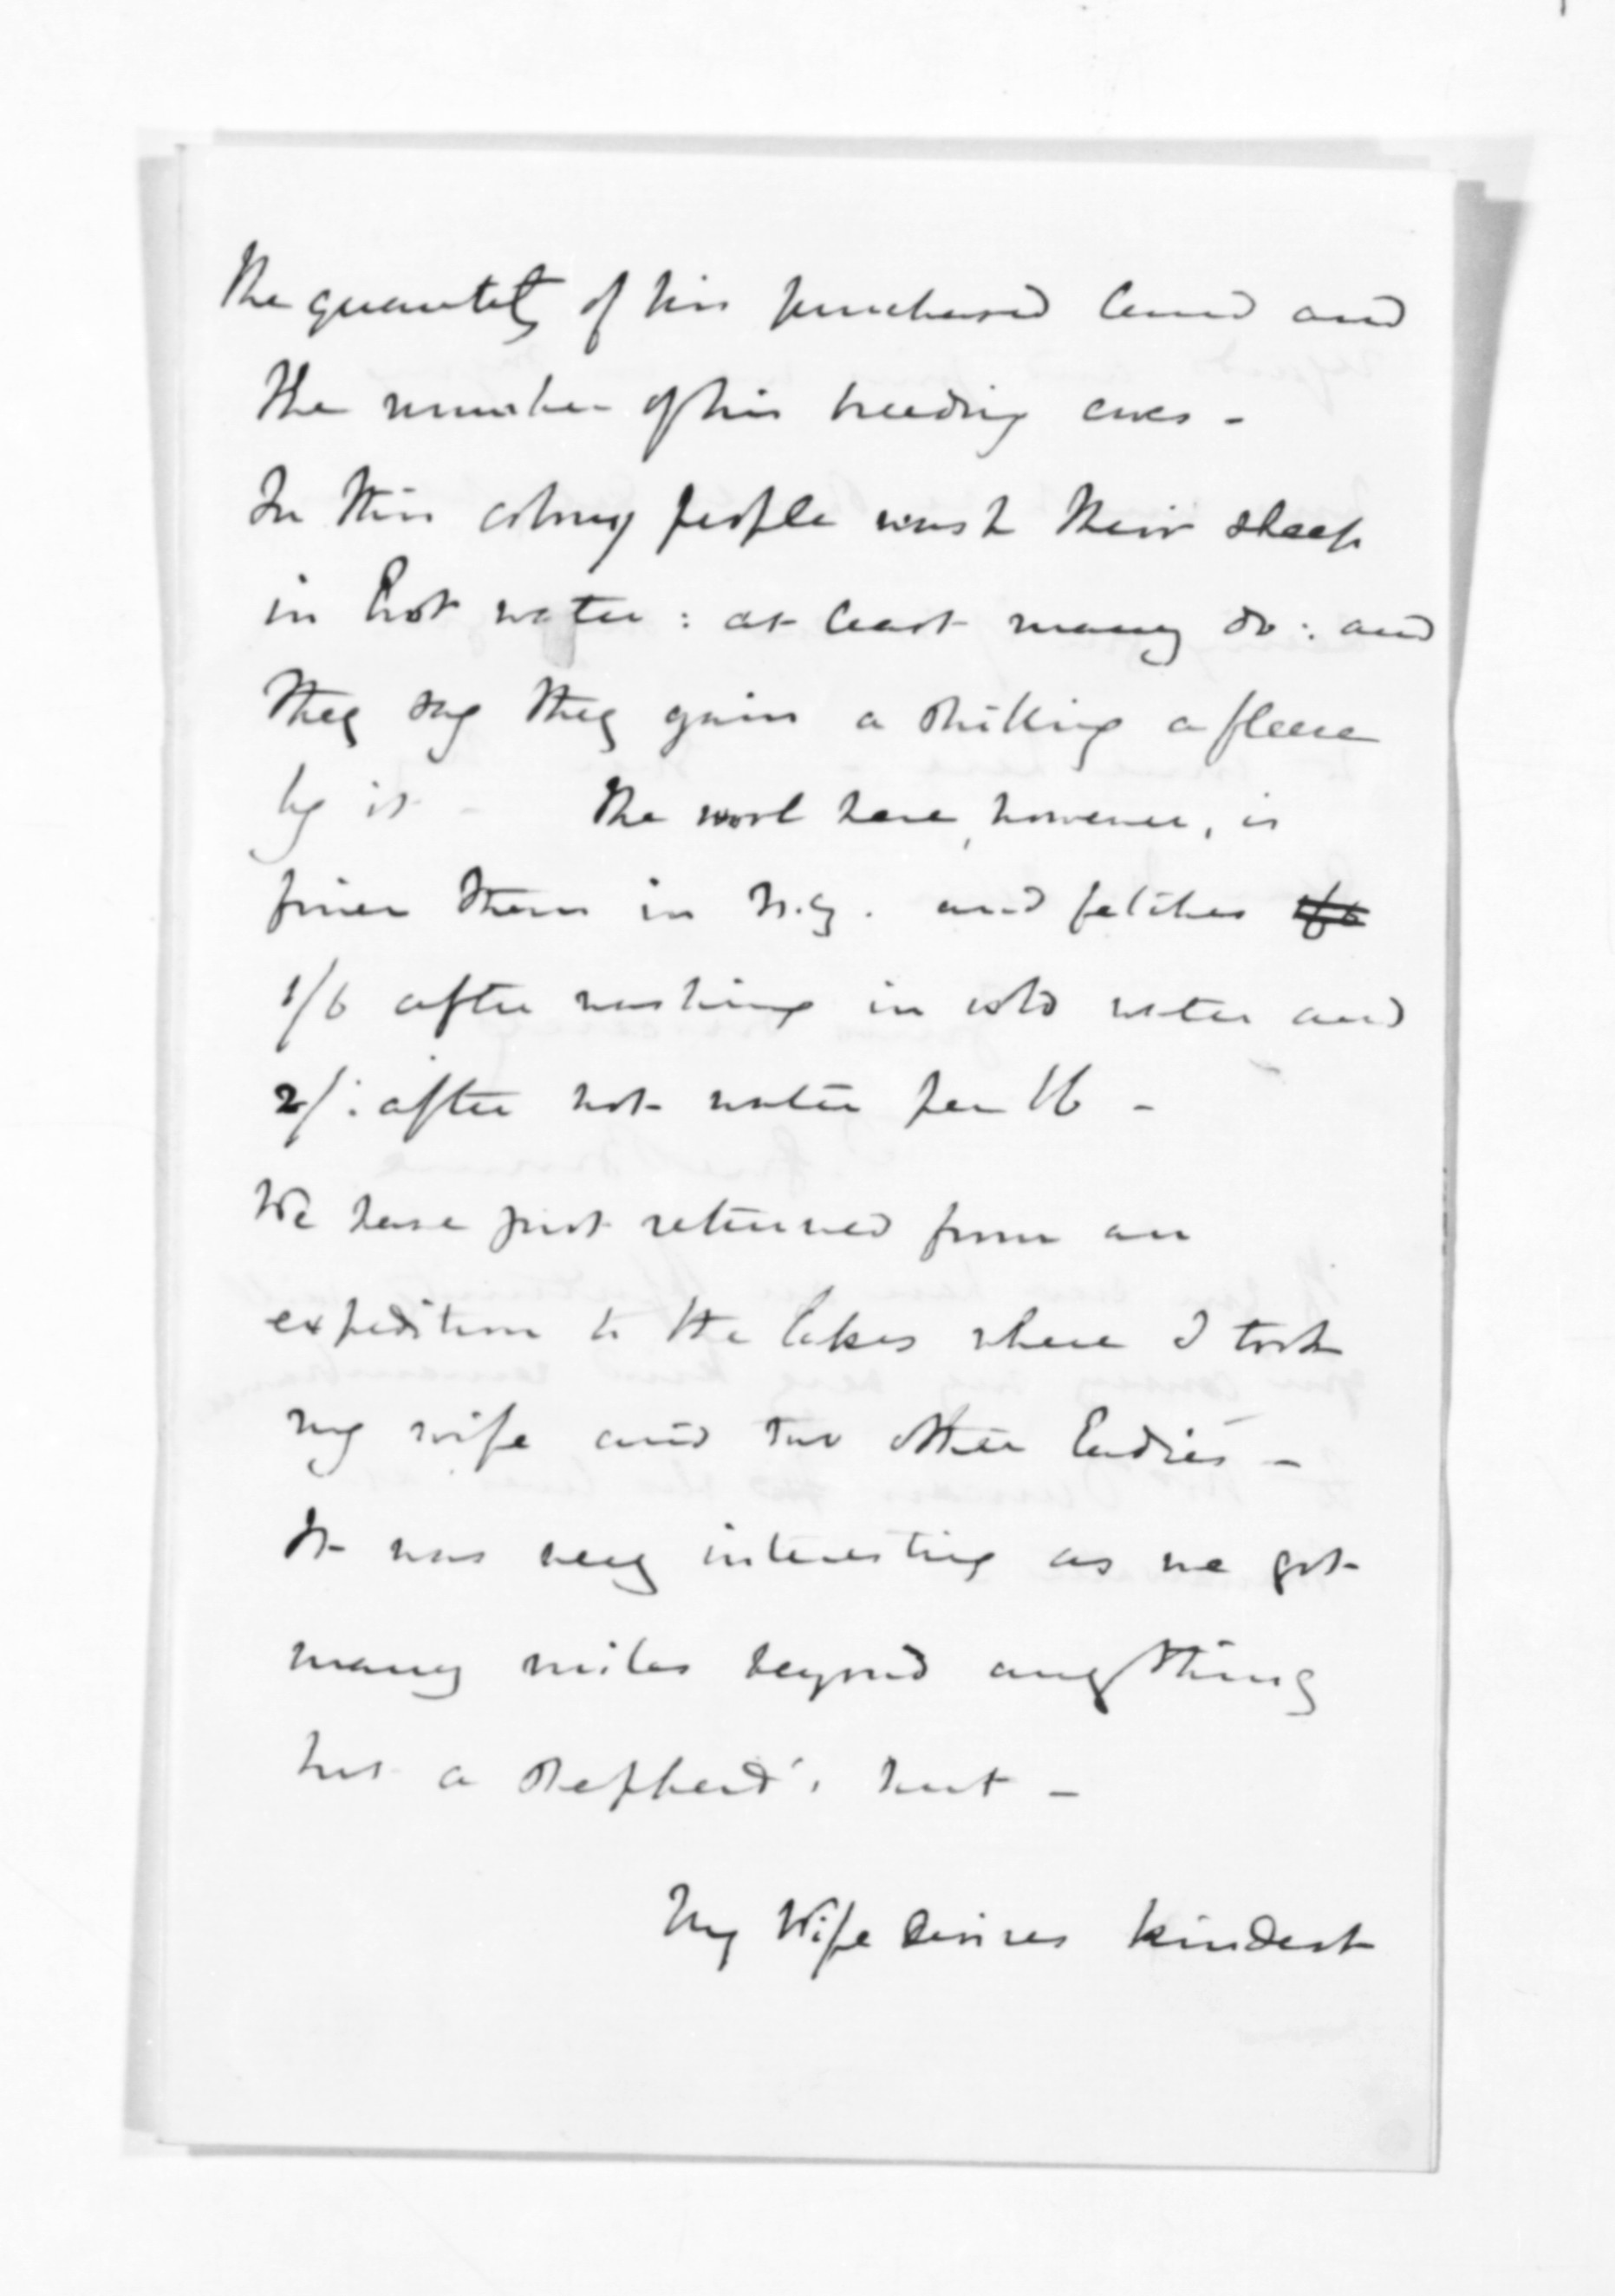 the quantity of his purchased land and
the number of his breeding ewes -
In this colony people wash their sheep
in hot water : at least many do : and
they say they gain a shilling a fleece
by it - The wool here, however, is
finer than in N.Z. and fetches
1/6 after washing in cold water and
2/. after hot water per lb -
We have just returned from an
expedition to the lakes where I took
my wife and two other Ladies -
It was very interesting as we got
many miles beyond anything
but a shepherd's hut -
My Wife desires kindest